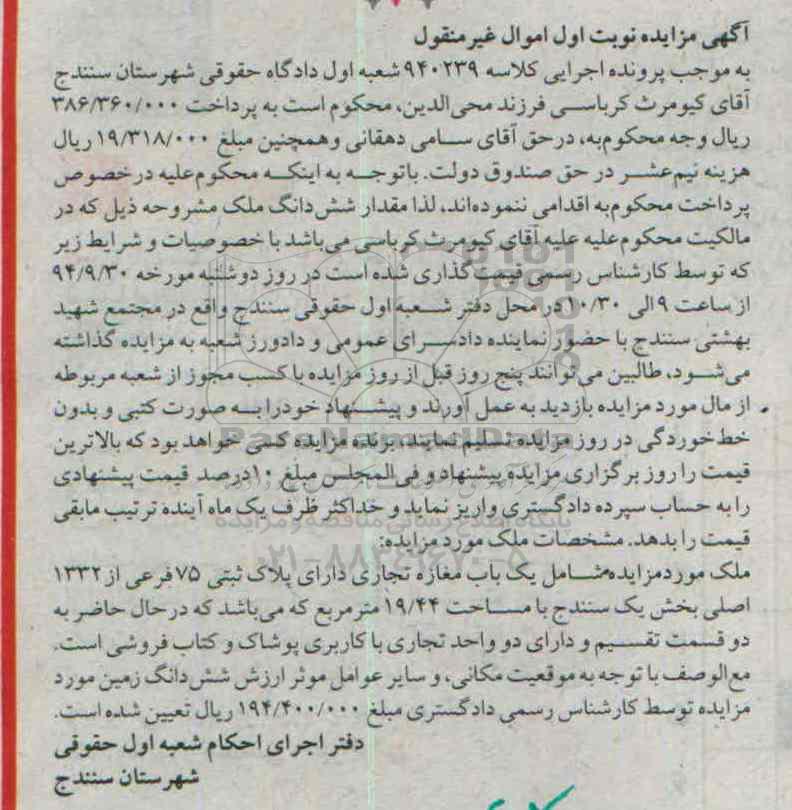 آگهی مزایده نوبت اول اموال غیرمنقول
به موجب پرونده اجرایی کلاسه ۹۴۰۲۳۹ شعبه اول دادگاه حقوقی شهرستان سنندج
آقای کیومرث کرباسی فرزند محی‌الدین، محکوم است به پرداخت ۳۸۶/۳۶۰/۰۰۰
ریال وجه محکوم‌به، درحق آقای سامی دهقانی وهمچنین مبلغ ۱۹/۳۱۸/۰۰۰ ریال
هزینه نیم‌عشر در حق صندوق دولت. باتوجه به اینکه محکوم‌علیه درخصوص
پرداخت محکوم‌به اقدامی ننموده‌اند، لذا مقدار شش‌دانگ ملک مشروحه ذیل که در
مالکیت محکوم‌علیه علیه آقای کیومرث کرباسی می‌باشد با خصوصیات و شرایط زیر
که توسط کارشناس رسمی قیمت‌گذاری شده است در روز دوشنبه مورخه ۹۴/۹/۳۰
از ساعت ۹ الی ۱۰/۳۰ در محل دفتر شعبه اول حقوقی سنندج واقع در مجتمع شهید
بهشتی سنندج با حضور نماینده دادسرای عمومی و دادورز شعبه به مزایده گذاشته
می‌شود، طالبین می‌توانند پنج روز قبل از روز مزایده با کسب مجوز از شعبه مربوطه
از مال مورد مزایده بازدید به عمل آورند و پیشنهاد خودرا به صورت کتبی و بدون
خط‌خوردگی در روز مزایده تسلیم نمایند، برنده مزایده کسی خواهد بود که بالاترین
قیمت را روز برگزاری مزایده پیشنهاد و فی‌المجلس مبلغ ۱۰درصد قیمت پیشنهادی
را به حساب سپرده دادگستری واریز نماید و حداکثر ظرف یک ماه آینده ترتیب مابقی
قیمت را بدهد. مشخصات ملک مورد مزایده:
ملک موردمزایده‌شامل یک باب مغازه تجاری دارای پلاک ثبتی ۷۵ فرعی از ۱۳۳۲
اصلی بخش یک سنندج با مساحت ۱۹/۴۴ مترمربع که می‌باشد که درحال حاضر به
دو قسمت تقسیم و دارای دو واحد تجاری با کاربری پوشاک و کتاب فروشی است.
مع‌الوصف با توجه به موقعیت مکانی، و سایر عوامل موثر ارزش شش‌دانگ زمین مورد
مزایده توسط کارشناس رسمی دادگستری مبلغ ۱۹۴/۴۰۰/۰۰۰ ریال تعیین شده است.
دفتر اجرای احکام شعبه اول حقوقی
شهرستان سنندج
ParsNamadData
پایگاه اطلاع رسانی مناقصه و مزایده